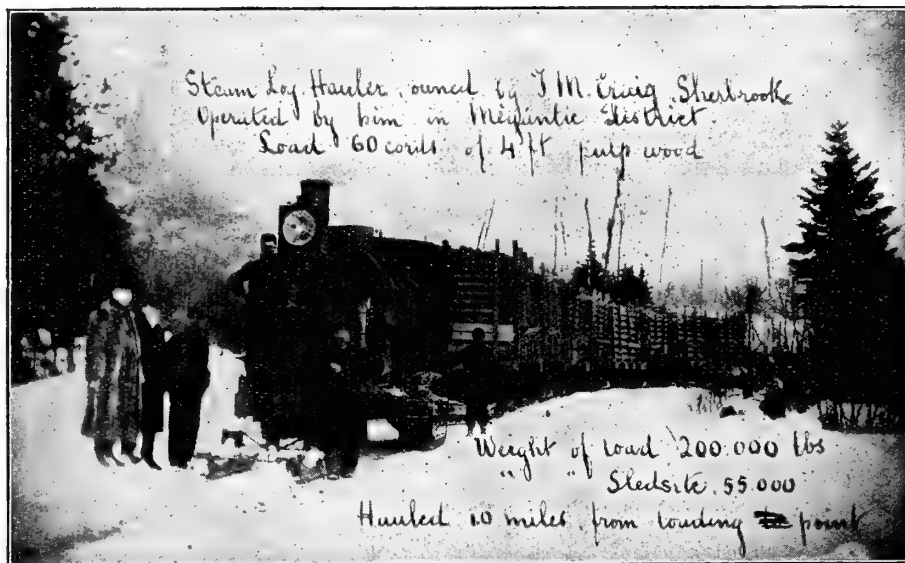 Steam Log Hauler, owned by T M. Craig Sherbrooke
Operated by him in Megantic District.
Load 60 cords of 4 ft pulp wood
Weight of load 200.000 lbs
" " Sleds etc. 55.000
Hauled 10 miles from loading point